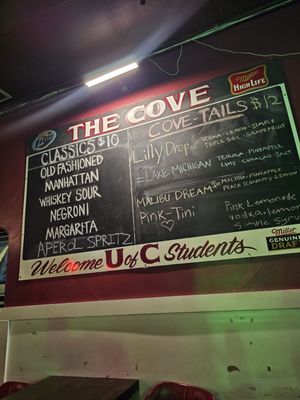 Miller
HIGH LIFE
Lite
THE COVE
CLASSICS $10
OLD FASHIONED
MANHATTAN
WHISKEY SOUR
NEGRONI
MARGARITA
APEROL SPRITZ
COVE-TAILS $12
Lilly Drop
VODKA-LEMON-SIMPLE
TRIPLE SEC-GRAPEFRUIT
LAKE MICHIGAN
TEQUILA-PINEAPPLE
LIME-CURACAO-SALT
MALIBU DREAM
MALIBU-PINEAPPLE
PEACH SCHNAPPS LEMON
Pink-Tini
Pink Lemonade
vodka, lemon
Simple Syr
Welcome U of C Students
Miller
GENUINE
DRAFT